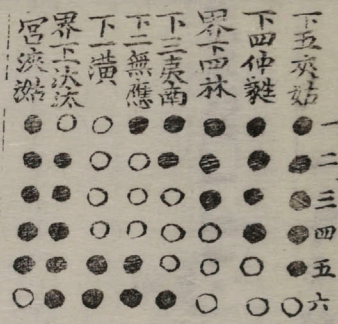 下五夾姑
下四仲蕤
界下四林
下三夷南
下二無應
下一潢
界汏汰
宮浹㴌
一
二
三
四
五
六